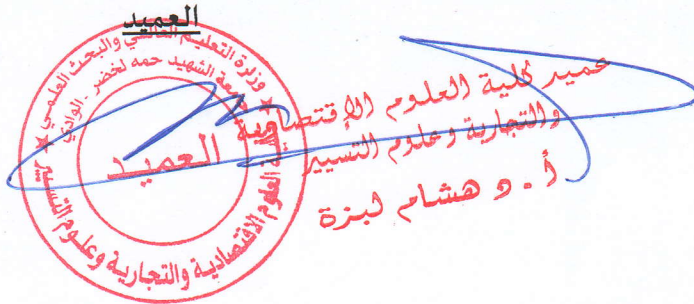 العميد
وزارة التعليم العالي والبحث العلمي
جامعة الشهيد حمه لخضر - الوادي
العميد
كلية العلوم الاقتصادية والتجارية وعلوم التسيير
عميد كلية العلوم الإقتصادية
والتجارية وعلوم التسيير
أ. د هشام لبزة